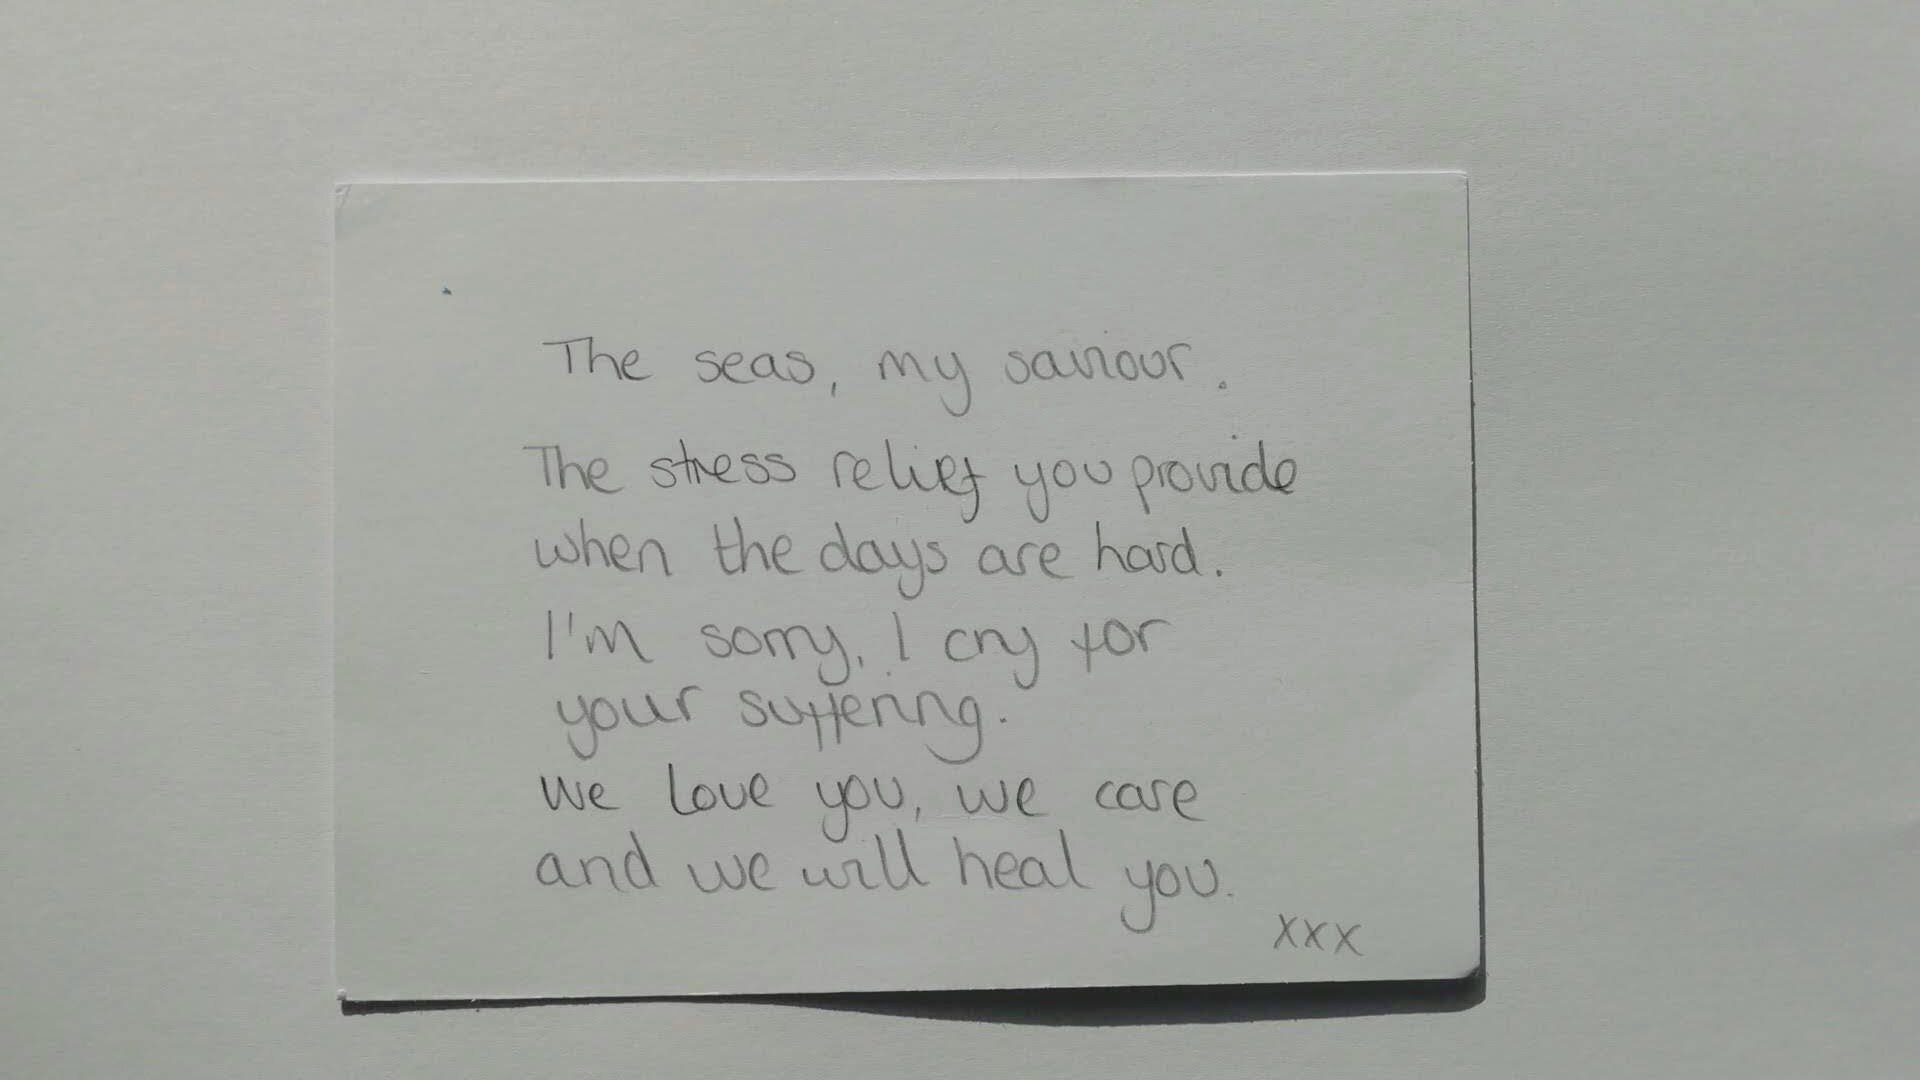 The seas, my saviour.
The stress relief you provide
when the days are hard.
I'm sorry, I cry for
your suffering.
We love you, we care
and we will heal you.
xxx